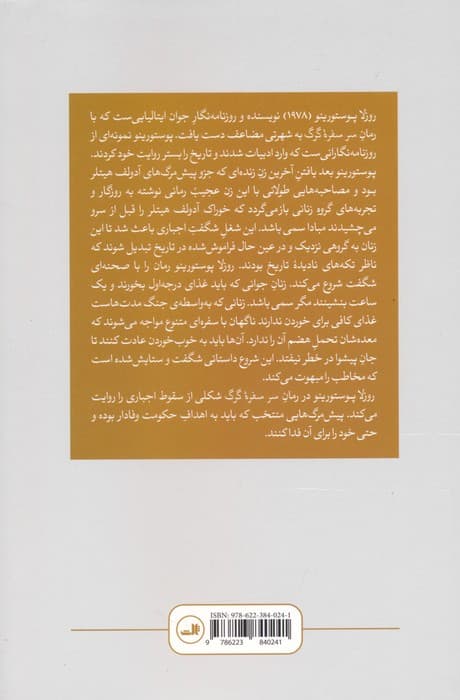 روزلا پوستورینو (۱۹۷۸) نویسنده و روزنامه‌نگار جوان ایتالیایی‌ست که با
رمانِ سرِ سفرهٔ گرگ به شهرتی مضاعف دست یافت. پوستورینو نمونه‌ای از
روزنامه‌نگارانی‌ست که وارد ادبیات شدند و تاریخ را بستر روایت خود کردند.
پوستورینو بعد یافتنِ آخرین زنِ زنده‌ای که جزو پیش‌مرگ‌های آدولف هیتلر
بود و مصاحبه‌هایی طولانی با این زن عجیب رمانی نوشته به روزگار و
تجربه‌های گروه زنانی بازمی‌گردد که خوراک آدولف هیتلر را قبل از سرو
می‌چشیدند مبادا سمی باشد. این شغلِ شگفتِ اجباری باعث شد تا این
زنان به گروهی نزدیک و در عین حال فراموش‌شده در تاریخ تبدیل شوند که
ناظر تکه‌های نادیدهٔ تاریخ بودند. روزلا پوستورینو رمان را با صحنه‌ای
شگفت شروع می‌کند. زنانِ جوانی که باید غذای درجه‌اول بخورند و یک
ساعت بنشینند مگر سمی باشد. زنانی که به‌واسطه‌ی جنگ مدت‌هاست
غذای کافی برای خوردن ندارند ناگهان با سفره‌ای متنوع مواجه می‌شوند که
معده‌شان تحملِ هضم آن را ندارد. آن‌ها باید به خوب‌خوردن عادت کنند تا
جانِ پیشوا در خطر نیفتد. این شروع داستانی شگفت و ستایش‌شده است
که مخاطب را مبهوت می‌کند.
روزلا پوستورینو در رمانِ سرِ سفرهٔ گرگ شکلی از سقوط اجباری را روایت
می‌کند. پیش‌مرگ‌هایی منتخب که باید به اهدافِ حکومت وفادار بوده و
حتی خود را برای آن فدا کنند.
ISBN: 978-622-384-024-1
9 786223 840241
ثالث